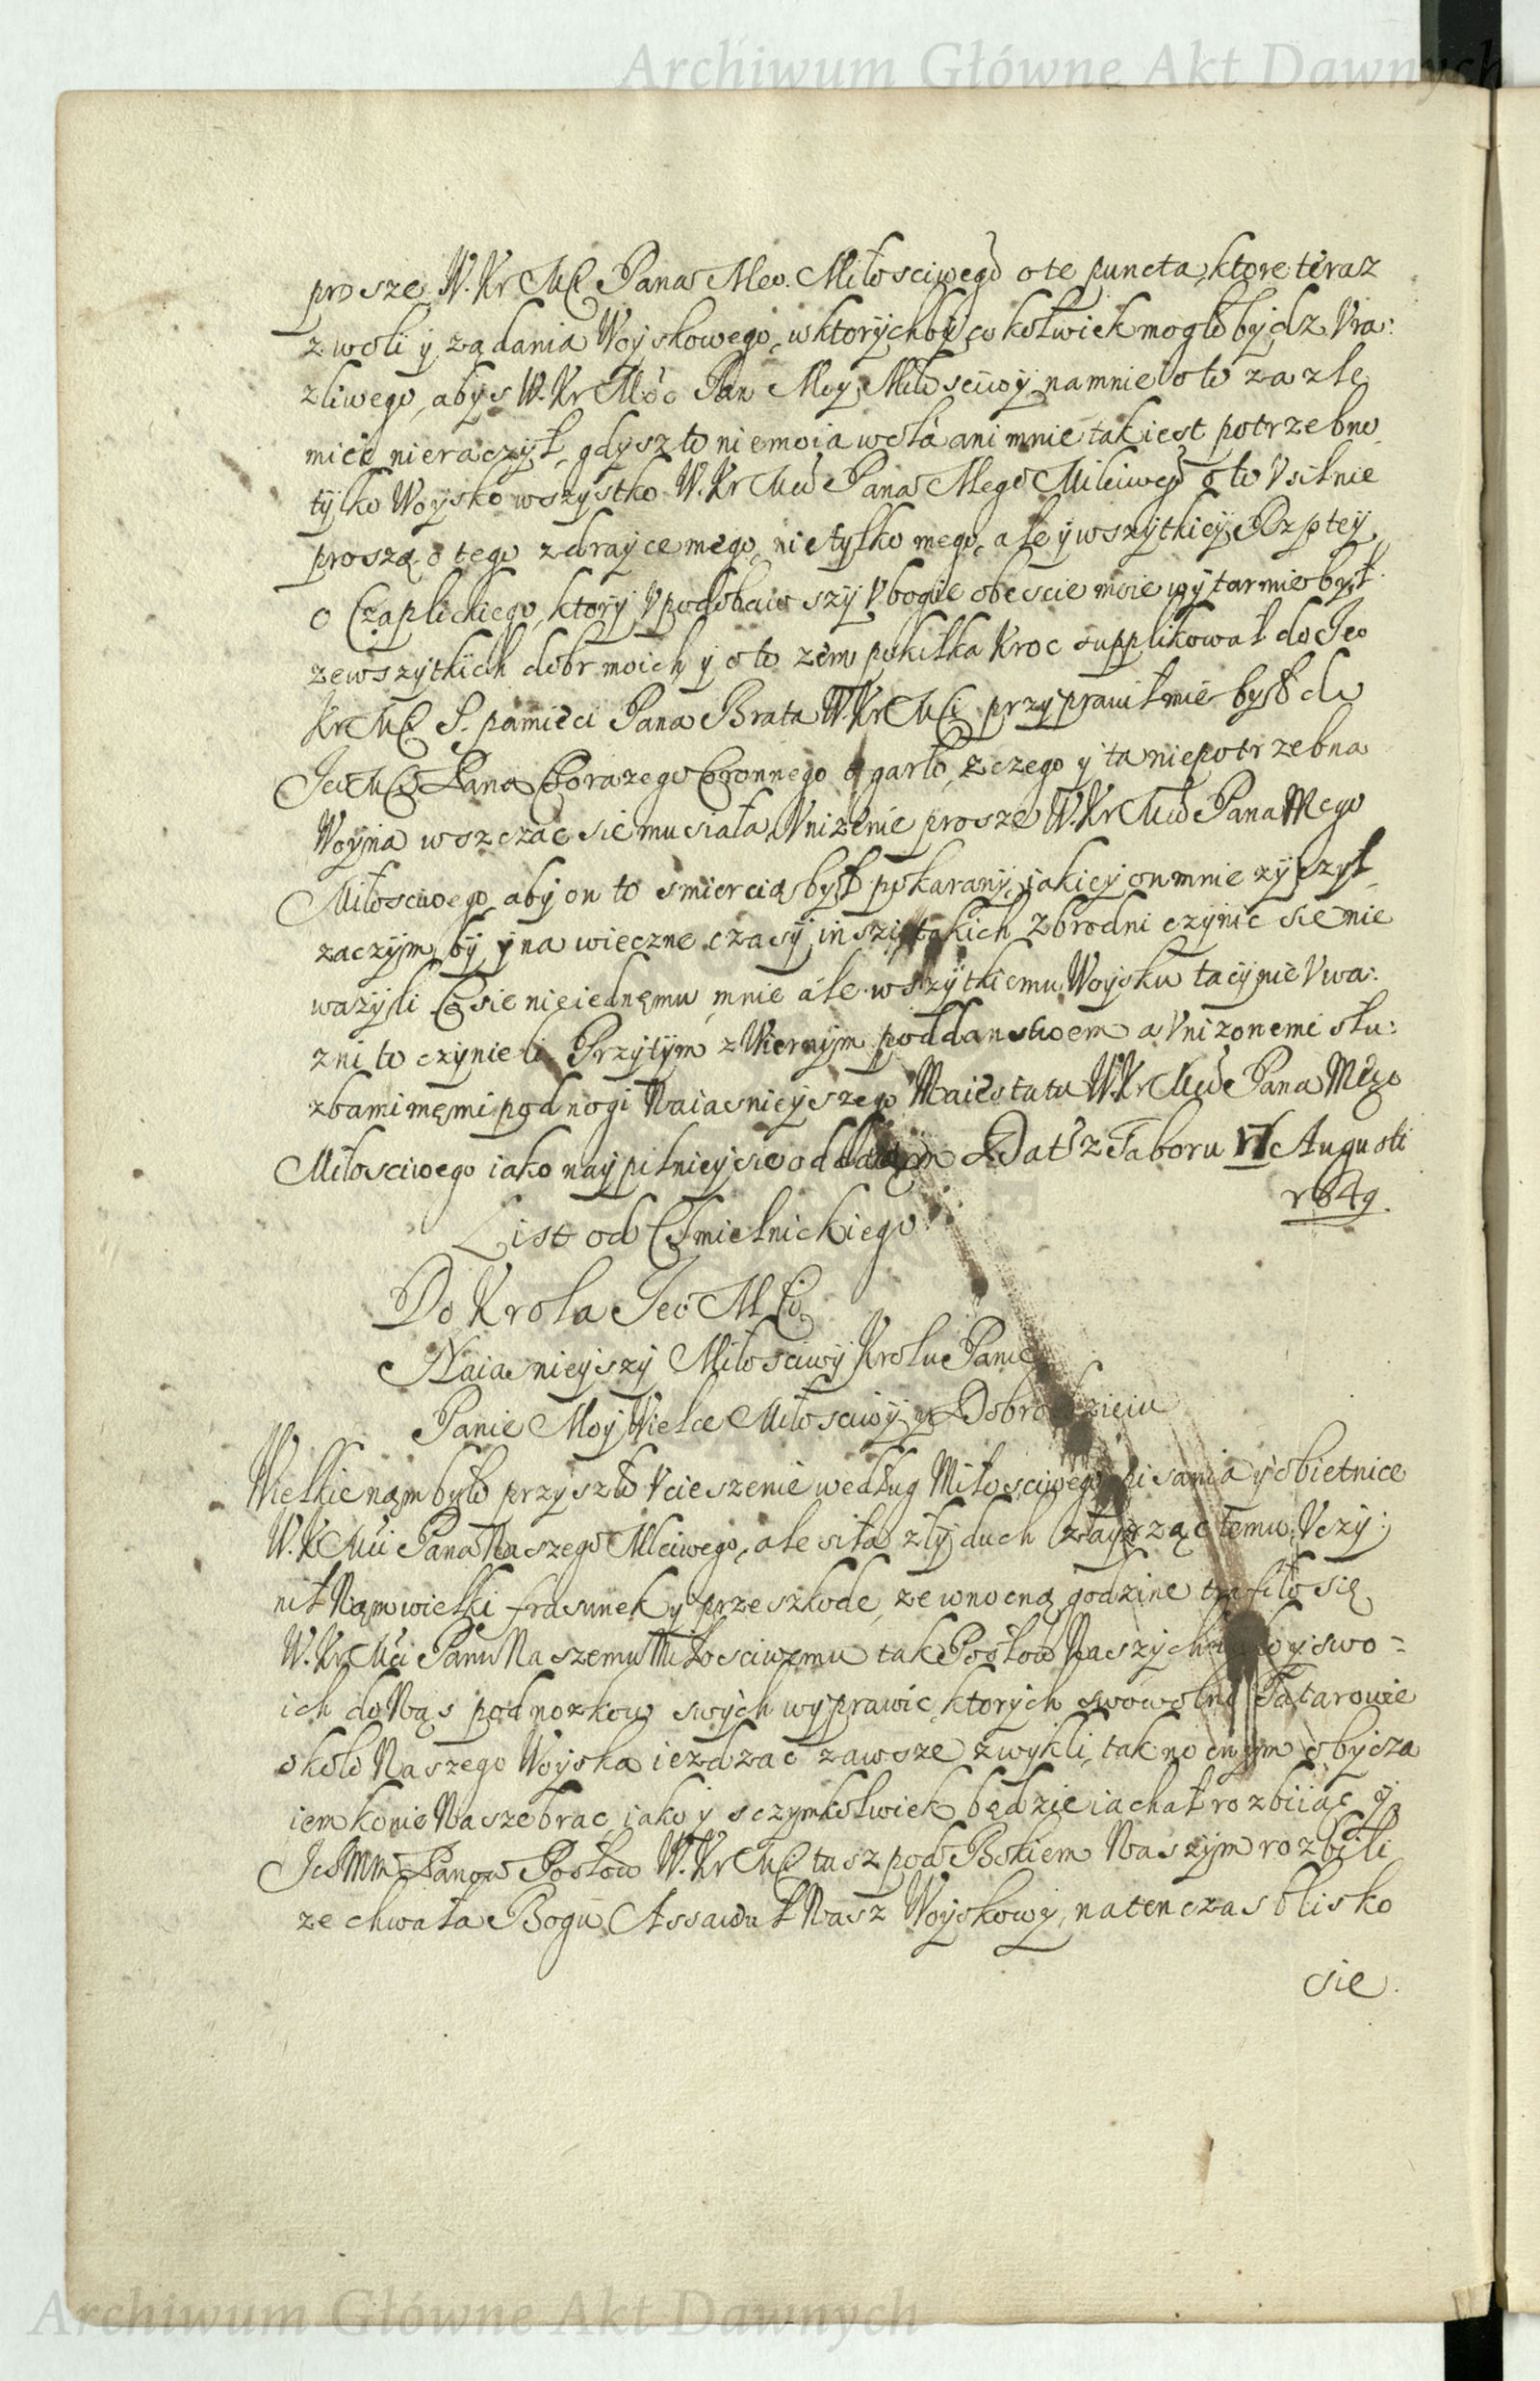 Archiwum Główne Akt Dawnych
prosze W. Kr Mci Pana Meo. Miłosciwego o te puncta, ktore teraz
z woli y ządania Woyskowego, w ktorychby cokolwiek mogło bydz Vra:
zliwego, abys W. Kr Mść Pan Moy Miłosciwy na mnie o to za złe
miec nieraczył, gdysz to nie moia wola ani mnie tak iest potrzebno
tylko Woysko wszystko W. Kr Mci Pana Mego Młciwego o to Vsilnie
proszą o tego zdrayce mego, nie tylko mego, ale y wszytkiey Rzptey
o Czaplickiego, ktory Vpodobawszy Vbogie obescie moie wytarmie był
ze wszytkich dobr moich y oto zem pokilka kroc supplikował do Jeo
Kr Mci S. pamieci Pana Brata W. Kr Mci przyprawił mie było do
Jeo Mci Pana Chorazego Coronnego o garło, z czego y ta niepotrzebna
Woyna wszczac sie musiała. Vnizenie prosze W. Kr Mci Pana Mego
Miłosciwego aby on to smiercią był pokarany, iakiey on mnie zyczył
zaczym by y na wieczne czasy inszi takich zbrodni czynic sie nie
wazyli Co sie nie iednemu mnie ale wszytkiemu Woysku tacy nie Vwa:
zni to czynieli. Przytym z Wiernym poddanstwem a Vnizonemi słu:
zbami memi pod nogi Naiasnieyszego Maiestatu W. Kr Mci Pana Mego
Miłosciwego iako naypilniey sie oddaięm Dat z Taboru 17 Augusti
1649.
List od Chmielnickiego
Do Krola Jeo Mci
Naiasnieyszy Miłosciwy Krolu Panie
Panie Moy Wielce Miłosciwy y Dobrodzieiu
Wielkie nam było przyszło Vcieszenie według Miłosciwego pisania y obietnice
W. K Mci Pana Naszego Mciwego, ale siła zły duch zayrząc temu, Vczy:
nił Nam wielki frasunek y przeszkode, ze w nocną godzine trafiło się
W. Kr Mci Panu Naszemu Miłosciwemu tak Posłow Naszych iako y swo=
ich do Nas podnozkow swych wyprawic, ktorych swowolni Tatarowie
około Naszego Woyska iezdzac zawsze zwykli, tak nocnym obycza
iem konie Nasze brac, iako y s czymkolwiek będzie iachał rozbiiac y
Ich Mm Panow Posłow W. Kr Mci tusz pod Bokiem Naszym rozbili
ze chwała Bogu, Assawuł Nasz Woyskowy, na ten czas blisko
sie
Archiwum Główne Akt Dawnych